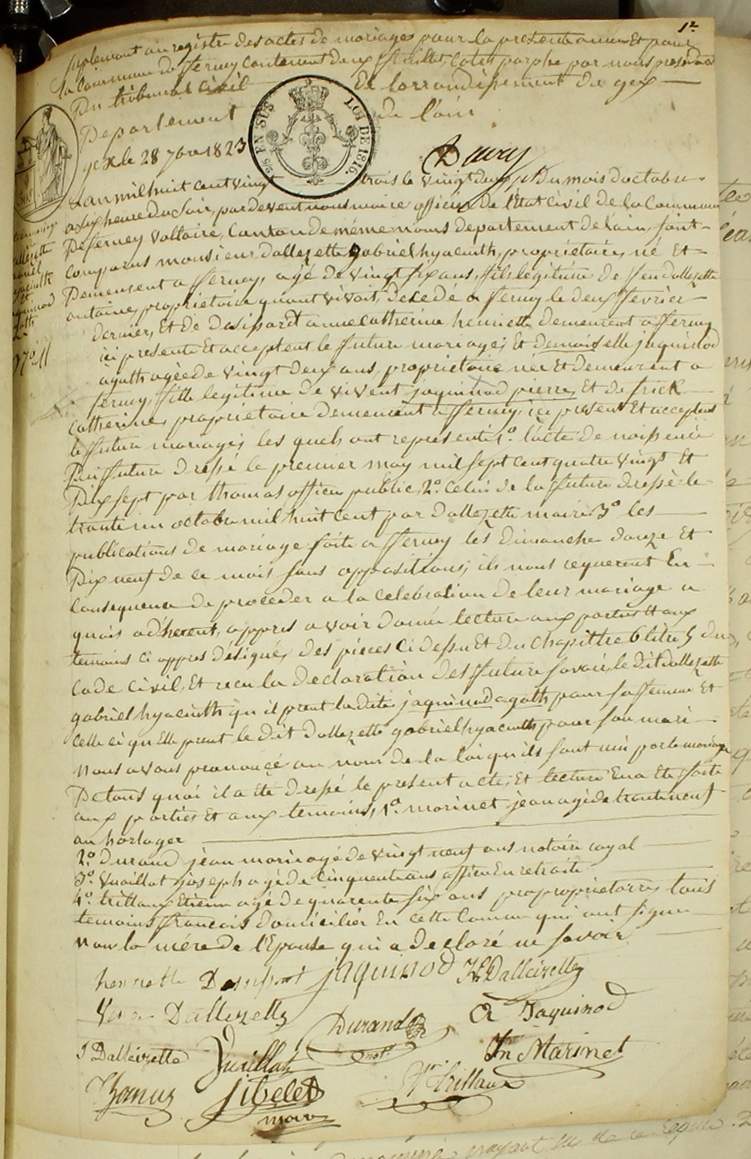 1r
Suplement au registre des actes de mariages pour la presente année Et pour
la Commune de ferney Contenant deux feuillet Cotes paraphe par nous president
Du tribunal Civil De l'arrondissement de gex
Departement de l'ain
gex le 28 7bre 1823
EN SUS LOI DE 1816.
L'an mil huit cent vingt trois le vingt deux du mois d'octobre
a six heure du soir, par devent nous maire officier de l'Etat Civil de la Commune
De ferney Voltaire, Canton de même nom Departement de l'ain, sont
Comparus monsieur dallezette gabriel hyacinth, propriétaire, né Et
Demeurent a ferney, agé de vingt six ans, fils legitime de feu dallezette
antoine, proprietaire quant vivait, decedé a ferney le deux fevrier
dernier, Et de anne catherine henriette demeurent a ferney
ici presente Et acceptent le future mariage; Et demoiselle jaquinod
agath agée de vingt deux ans, proprietaire née Et demeurent a
ferney, fille legitime de vivent jaquinod pierre, Et de frick
catherine, proprietaire demeurent a ferney, ici present Et acceptent
le future mariage, les quels ont representé 1º. l'acte de naissence
Du future dressé le premier may mil sept cent quatre vingt Et
Dix sept par thomas officier public, 2º. Celui de la future dressé le
trante un octobre mil huit cent par dallezette maire 3º. les
publications de mariage faite a ferney les dimanche douze Et
Dix neuf de ce mois sans oppositions; ils nous requerent En
Consequence de proceder a la celebration de leur mariage a
quoi adherent, appres avoir donné lecture aux parties Et aux
temoins ci appres designés, des pieces ci dessu Et du chapittre 6 titre 5 du
Code Civil, Et recu la declaration des future savoir le dit dallezette
gabriel hyacinth qu'il prent la dite jaquinod agath pour sa femme Et
Celle ci qu'Elle prent le dit dallezette gabriel hyacinth pour son mari
Nous avons prononcé au nom de la loi qu'ils sont uni par le mariage
De tous quoi il a Eté dressé le present acte; Et lecture En a Eté faite
aux parties Et aux temoins, 1º. morinet jean agé de trante neuf
an horloger
2º. durand jean marie agé de vingt neuf ans notaire royal
3º. Vuaillat joseph agé de Cinquente ans officier En retraite
4º. trillaux Etienne agé de quarente six ans proproprietaire, tous
temoins francois domicilier En cette Commune qui ont signe
non la mère de l'Epouse qui a declaré ne savoir
henriette jaquinod Dallezette
Dallezette Durand not. Jaquinod
J Dallezette Vuaillat Jn Marinet
Libelet maire Trillaux